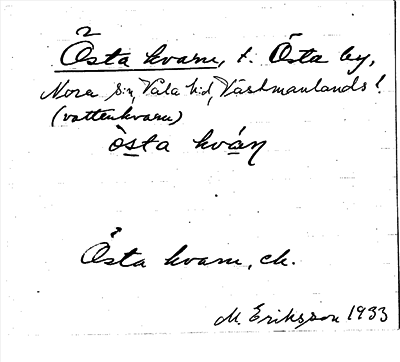 Östa kvarn, t. Östa by,
Nora sn, Våla hd, Västmanlands l.
(vattenkvarn)
òsta kváṇ
Östa kvarn, ek.
M. Eriksson 1933